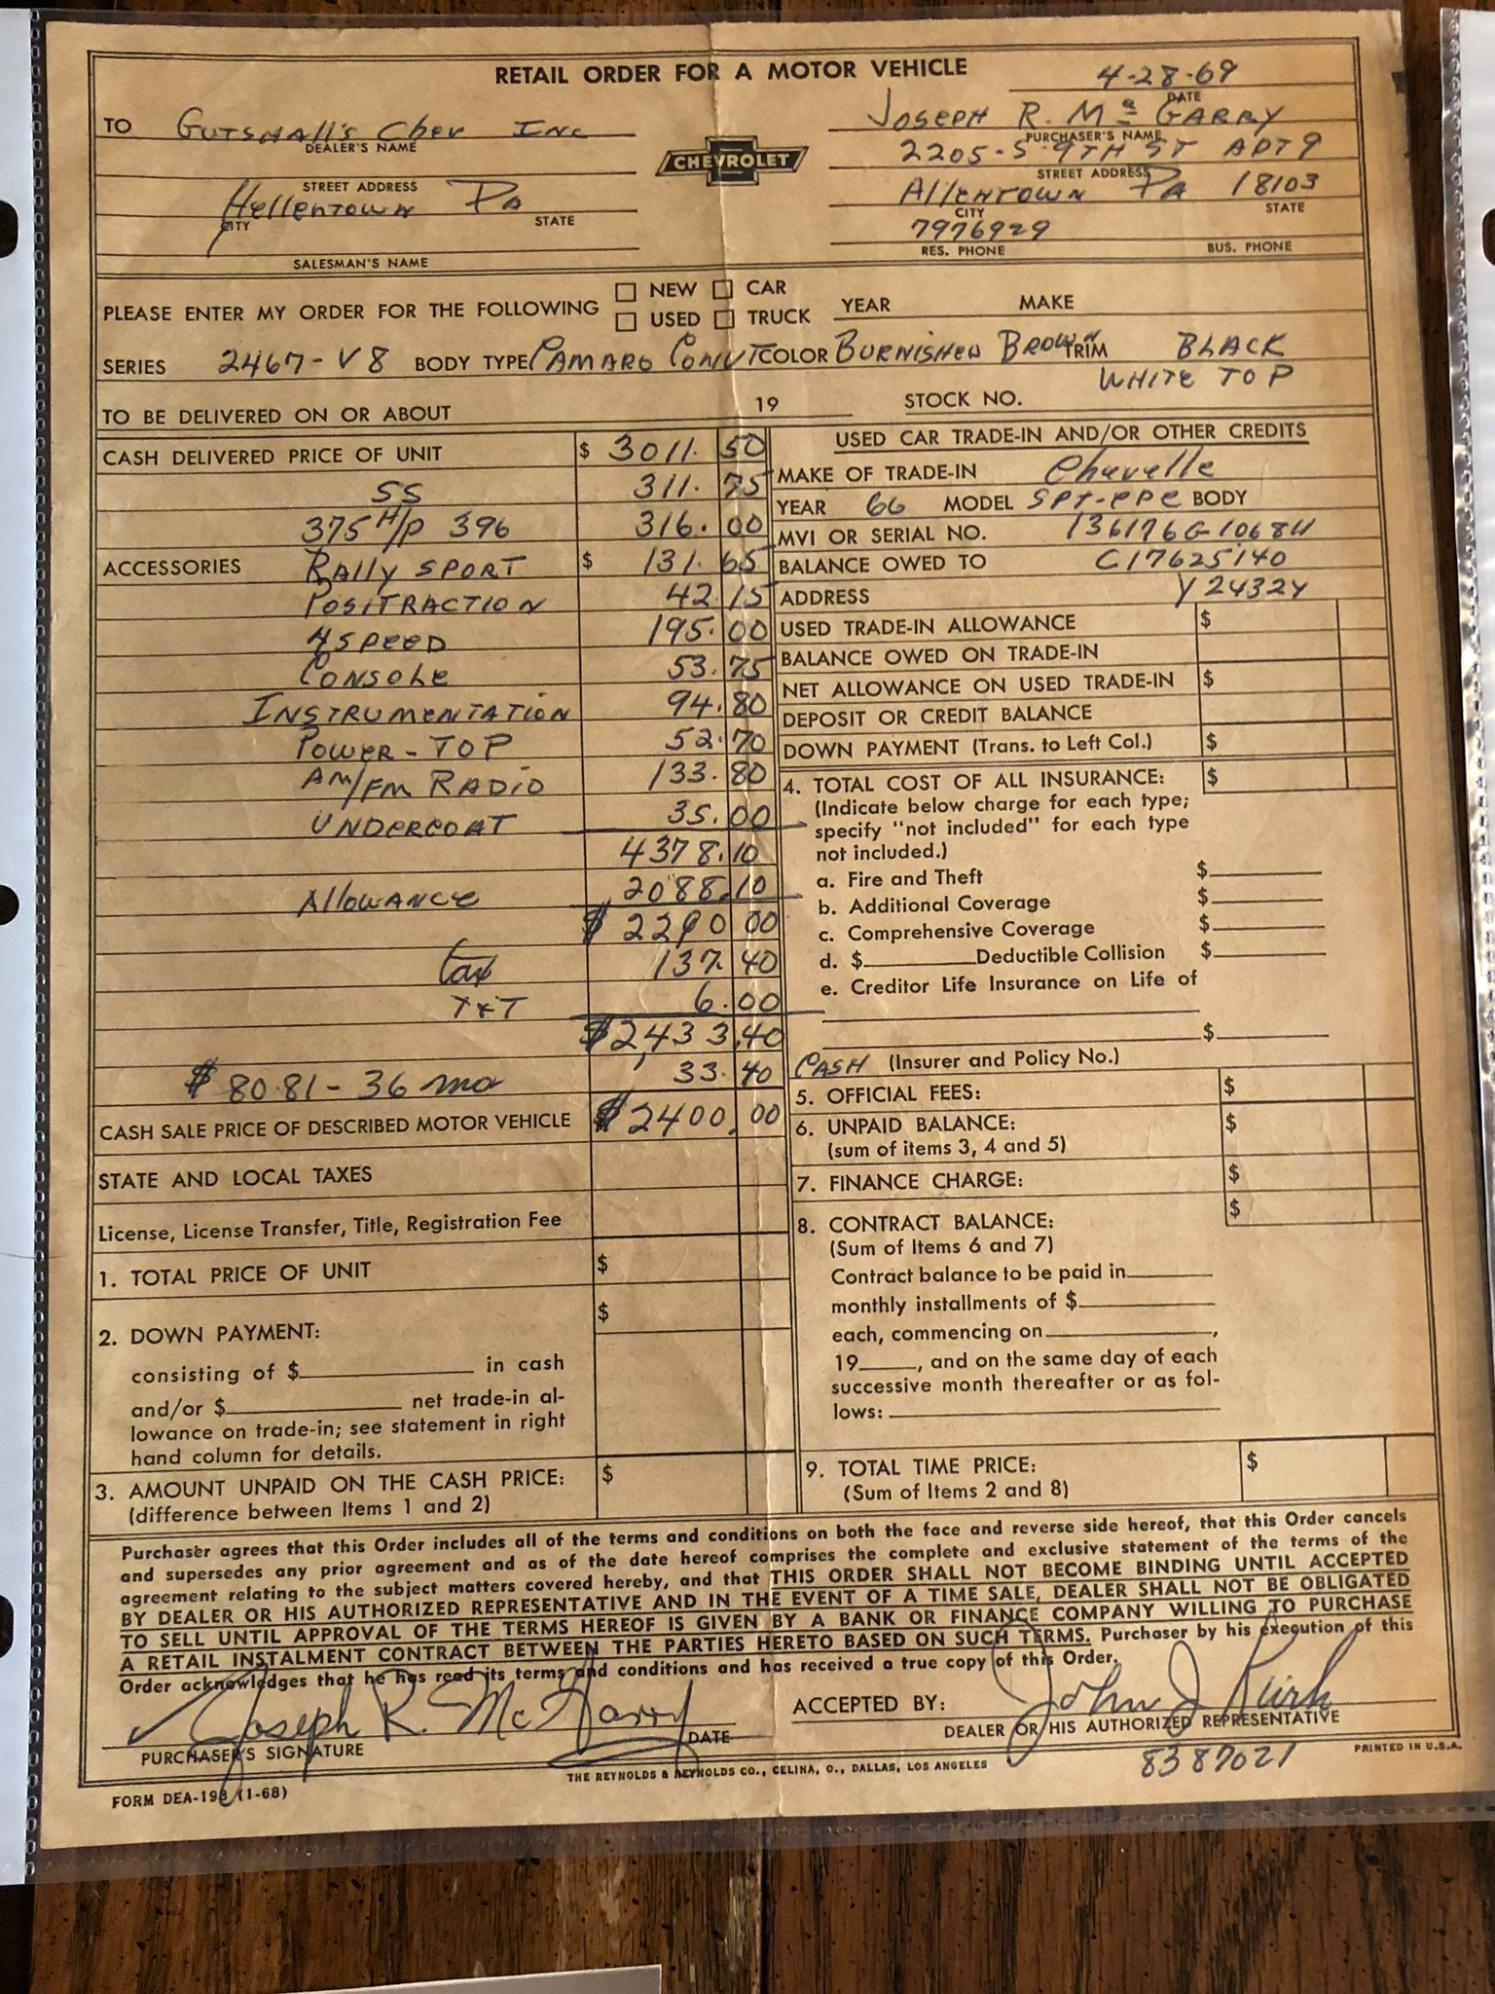 RETAIL ORDER FOR A MOTOR VEHICLE
4-28-69
DATE
TO Gutshall's Chev Inc
DEALER'S NAME
STREET ADDRESS
Hellertown Pa
CITY STATE
SALESMAN'S NAME
CHEVROLET
JOSEPH R. Mc GARRY
PURCHASER'S NAME
2205-S 9TH ST APT 9
STREET ADDRESS
Allentown Pa 18103
CITY STATE
7976929
RES. PHONE BUS. PHONE
PLEASE ENTER MY ORDER FOR THE FOLLOWING NEW CAR YEAR MAKE
USED TRUCK
SERIES 2467-V8 BODY TYPE CAMARO CONVT COLOR BURNISHED BROWN TRIM BLACK
WHITE TOP
TO BE DELIVERED ON OR ABOUT 19 STOCK NO.
CASH DELIVERED PRICE OF UNIT $ 3011.50
SS 311.75
375 H/P 396 316.00
ACCESSORIES RALLY SPORT $ 131.65
POSITRACTION 42.15
4 SPEED 195.00
CONSOLE 53.75
INSTRUMENTATION 94.80
POWER-TOP 52.70
AM/FM RADIO 133.80
UNDERCOAT 35.00
4378.10
ALLOWANCE 2088.10
$ 2290 00
tax 137.40
T&T 6.00
$2,433.40
$ 80.81 - 36 mo 33.40 CASH
CASH SALE PRICE OF DESCRIBED MOTOR VEHICLE $2400.00
STATE AND LOCAL TAXES
License, License Transfer, Title, Registration Fee
1. TOTAL PRICE OF UNIT $
2. DOWN PAYMENT: $
consisting of $ in cash
and/or $ net trade-in al-
lowance on trade-in; see statement in right
hand column for details.
3. AMOUNT UNPAID ON THE CASH PRICE: $
(difference between Items 1 and 2)
USED CAR TRADE-IN AND/OR OTHER CREDITS
MAKE OF TRADE-IN Chevelle
YEAR 66 MODEL SPT-CPE BODY
MVI OR SERIAL NO.
BALANCE OWED TO C17625140
ADDRESS Y2432Y
USED TRADE-IN ALLOWANCE $
BALANCE OWED ON TRADE-IN
NET ALLOWANCE ON USED TRADE-IN $
DEPOSIT OR CREDIT BALANCE
DOWN PAYMENT (Trans. to Left Col.) $
4. TOTAL COST OF ALL INSURANCE: $
(Indicate below charge for each type;
specify "not included" for each type
not included.)
a. Fire and Theft $
b. Additional Coverage $
c. Comprehensive Coverage $
d. $ Deductible Collision $
e. Creditor Life Insurance on Life of
$
(Insurer and Policy No.)
5. OFFICIAL FEES: $
6. UNPAID BALANCE: $
(sum of items 3, 4 and 5)
7. FINANCE CHARGE: $
8. CONTRACT BALANCE: $
(Sum of Items 6 and 7)
Contract balance to be paid in
monthly installments of $
each, commencing on ,
19 , and on the same day of each
successive month thereafter or as fol-
lows:
9. TOTAL TIME PRICE: $
(Sum of Items 2 and 8)
Purchaser agrees that this Order includes all of the terms and conditions on both the face and reverse side hereof, that this Order cancels
and supersedes any prior agreement and as of the date hereof comprises the complete and exclusive statement of the terms of the
agreement relating to the subject matters covered hereby, and that THIS ORDER SHALL NOT BECOME BINDING UNTIL ACCEPTED
BY DEALER OR HIS AUTHORIZED REPRESENTATIVE AND IN THE EVENT OF A TIME SALE, DEALER SHALL NOT BE OBLIGATED
TO SELL UNTIL APPROVAL OF THE TERMS HEREOF IS GIVEN BY A BANK OR FINANCE COMPANY WILLING TO PURCHASE
A RETAIL INSTALMENT CONTRACT BETWEEN THE PARTIES HERETO BASED ON SUCH TERMS. Purchaser by his execution of this
Order acknowledges that he has read its terms and conditions and has received a true copy of this Order.
Joseph R. McGarry
PURCHASER'S SIGNATURE DATE
ACCEPTED BY: John J Kirk
DEALER OR HIS AUTHORIZED REPRESENTATIVE
8387021
PRINTED IN U.S.A.
THE REYNOLDS & REYNOLDS CO., CELINA, O., DALLAS, LOS ANGELES
FORM DEA-198 (1-68)